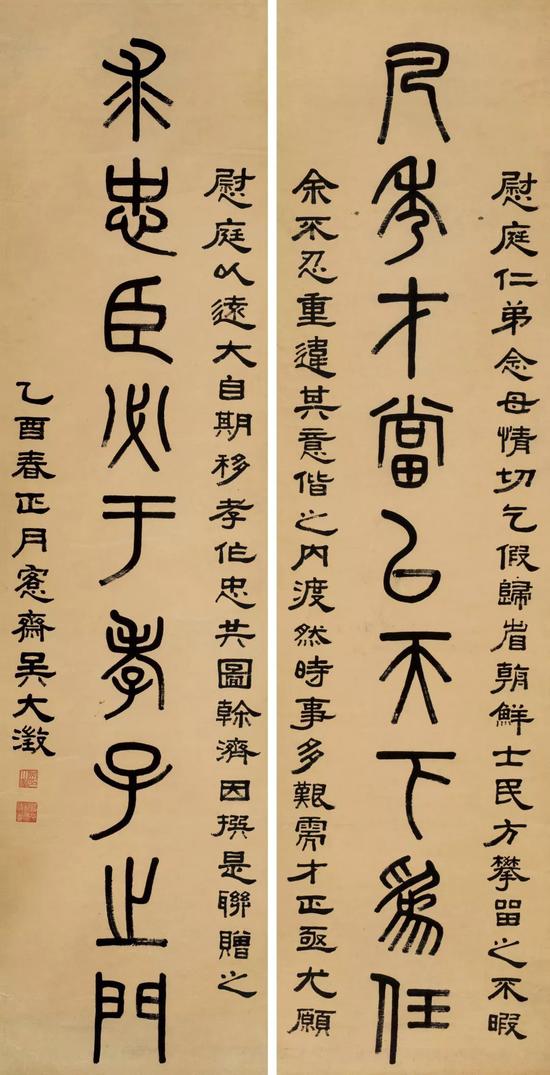 慰庭仁弟念母情切乞假歸省朝鮮士民方攀畱之不暇
凡秀才當以天下為任
余不忍重違其意偕之內渡然時事多艱需才正亟尤願
慰庭以遠大自期移孝作忠共圖榦濟因撰是聯贈之
求忠臣必于孝子之門
乙酉春正月愙齋吳大澂